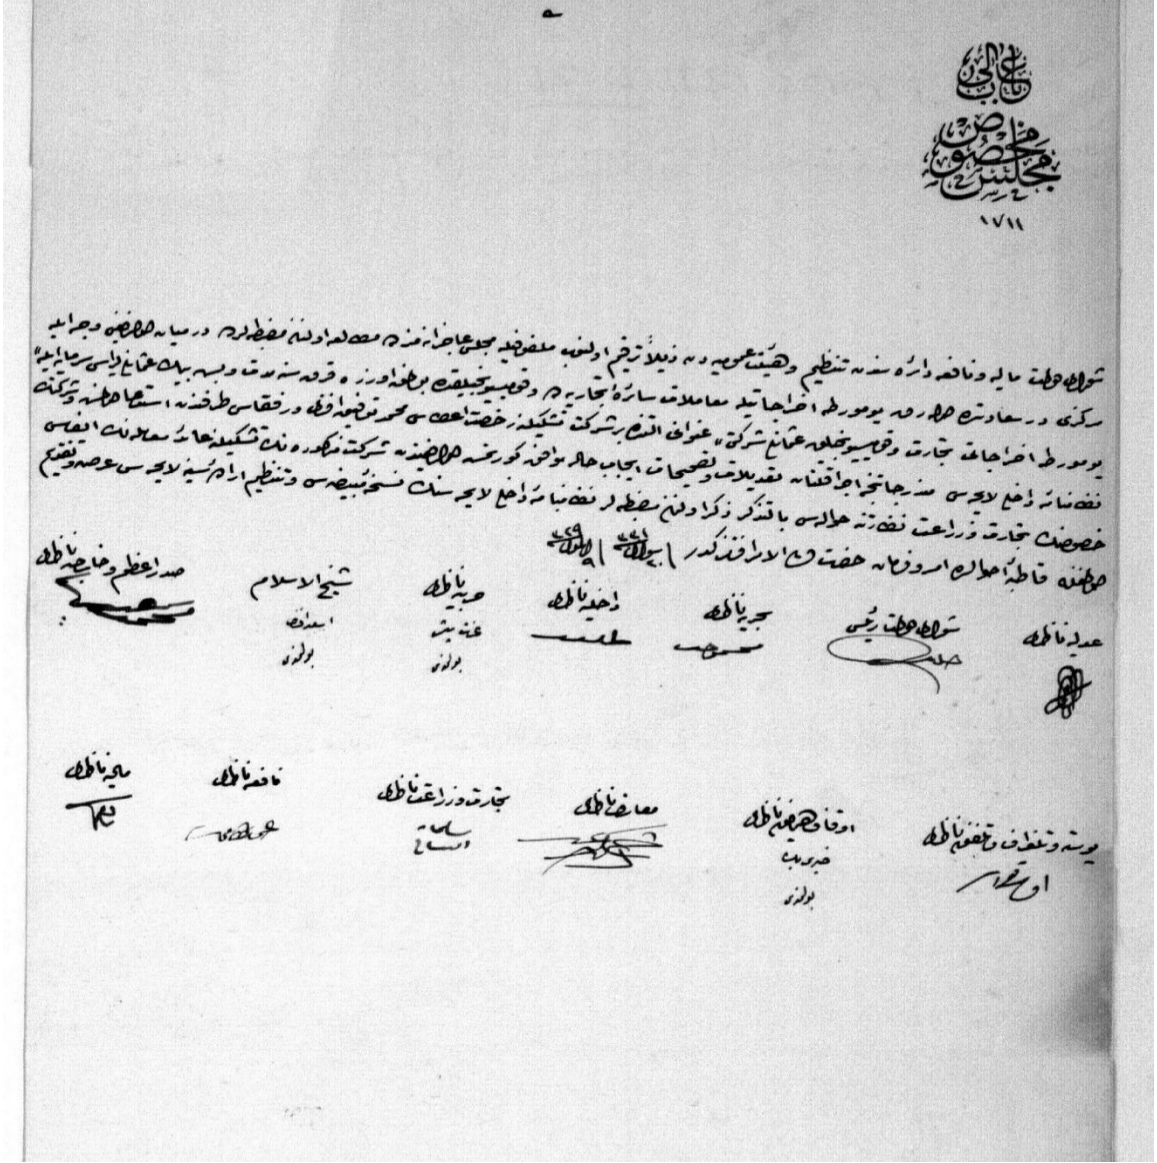 باب عالی
مجلس مخصوص
١٧١١
شورای دولت مالیه و نافعه دائره سندن تنظیم و هیئت عمومیه دن ذیلاً ترقیم اولنوب ملفوفیله مجلس عاجزانه مزده مطالعه اولنان مضبطه لرده درمیان اولندیغی وجهله
مرکزی در سعادتده اولمق یومورطه اخراجاتیله معاملات سائرهٔ تجاریه ده و قومیسیونجیلقده بولنمق اوزره قرق سنه مدت و بیك عثمانلی لیراسی سرمایه ایله
یومورطه اخراجات تجارت و قومیسیونجیلق عثمانلی شرکتی عنوانی آلتنده بر شرکت تشکیلنه رخصت اعطاسی محمد توفیق افندی و رفقاسی طرفندن استدعا اولنمش و شرکتك
نظامنامهٔ داخلی لایحه سی مندرجاتنجه اجرا قلنان تعدیلات و تصحیحات ایجاب حاله موافق کورنمش اولدیغندن شرکت مذکوره نك تشکیلنه عائد معاملهنك ایفاسی
خصوصنك تجارت و زراعت نظارتنه حوالهسی بالتذکر ذکر اولنان مضبطه لر نظامنامهٔ داخلی لایحه سنك نسخهٔ مبیضهسی و تنظیم ارادهٔ سنیه لایحه سی عرض و تقدیم
قلنمغله قاطبهٔ احوالده امر و فرمان حضرت ولی الامر افندمزکدر
صدر اعظم و خارجیه ناظری
شیخ الاسلام
اسعد افندی
بولنمدی
حربیه ناظری
عزت پاشا
بولنمدی
داخلیه ناظری
طلعت
بحریه ناظری
محمود
شورای دولت رئیسی
خلیل
عدلیه ناظری
مالیه ناظری
نافعه ناظری
تجارت و زراعت ناظری
سلیمان البستانی
معارف ناظری
اوقاف همایون ناظری
خیری بك
بولنمدی
پوسته و تلغراف و تلفون ناظری